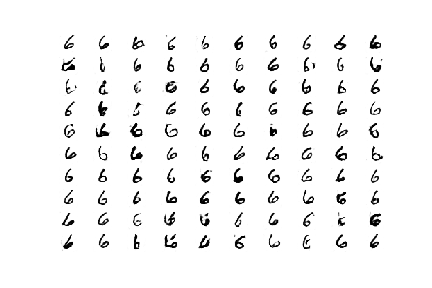 6 6 6 6 6 6 6 6 6 6
6 6 6 6 6 6 6 6 6 6
6 6 6 6 6 6 6 6 6 6
6 6 6 6 6 6 6 6 6 6
6 6 6 6 6 6 6 6 6 6
6 6 6 6 6 6 6 6 6 6
6 6 6 6 6 6 6 6 6 6
6 6 6 6 6 6 6 6 6 6
6 6 6 6 6 6 6 6 6 6
6 6 6 6 6 6 6 6 6 6